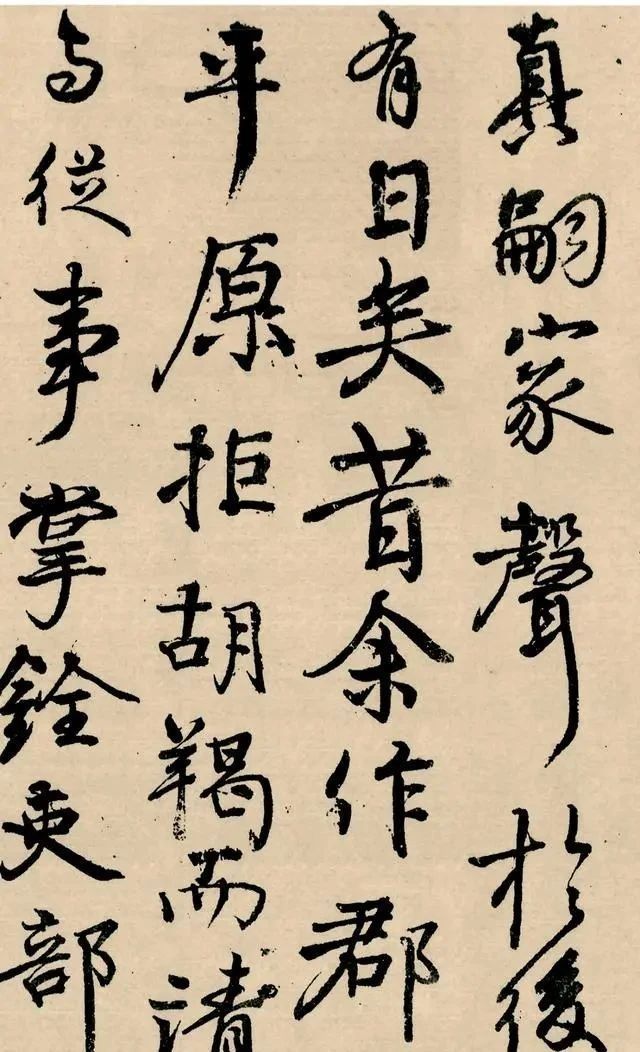 真嗣家聲於後
有日矣昔余作郡
平原拒胡羯而請
与從事掌銓吏部